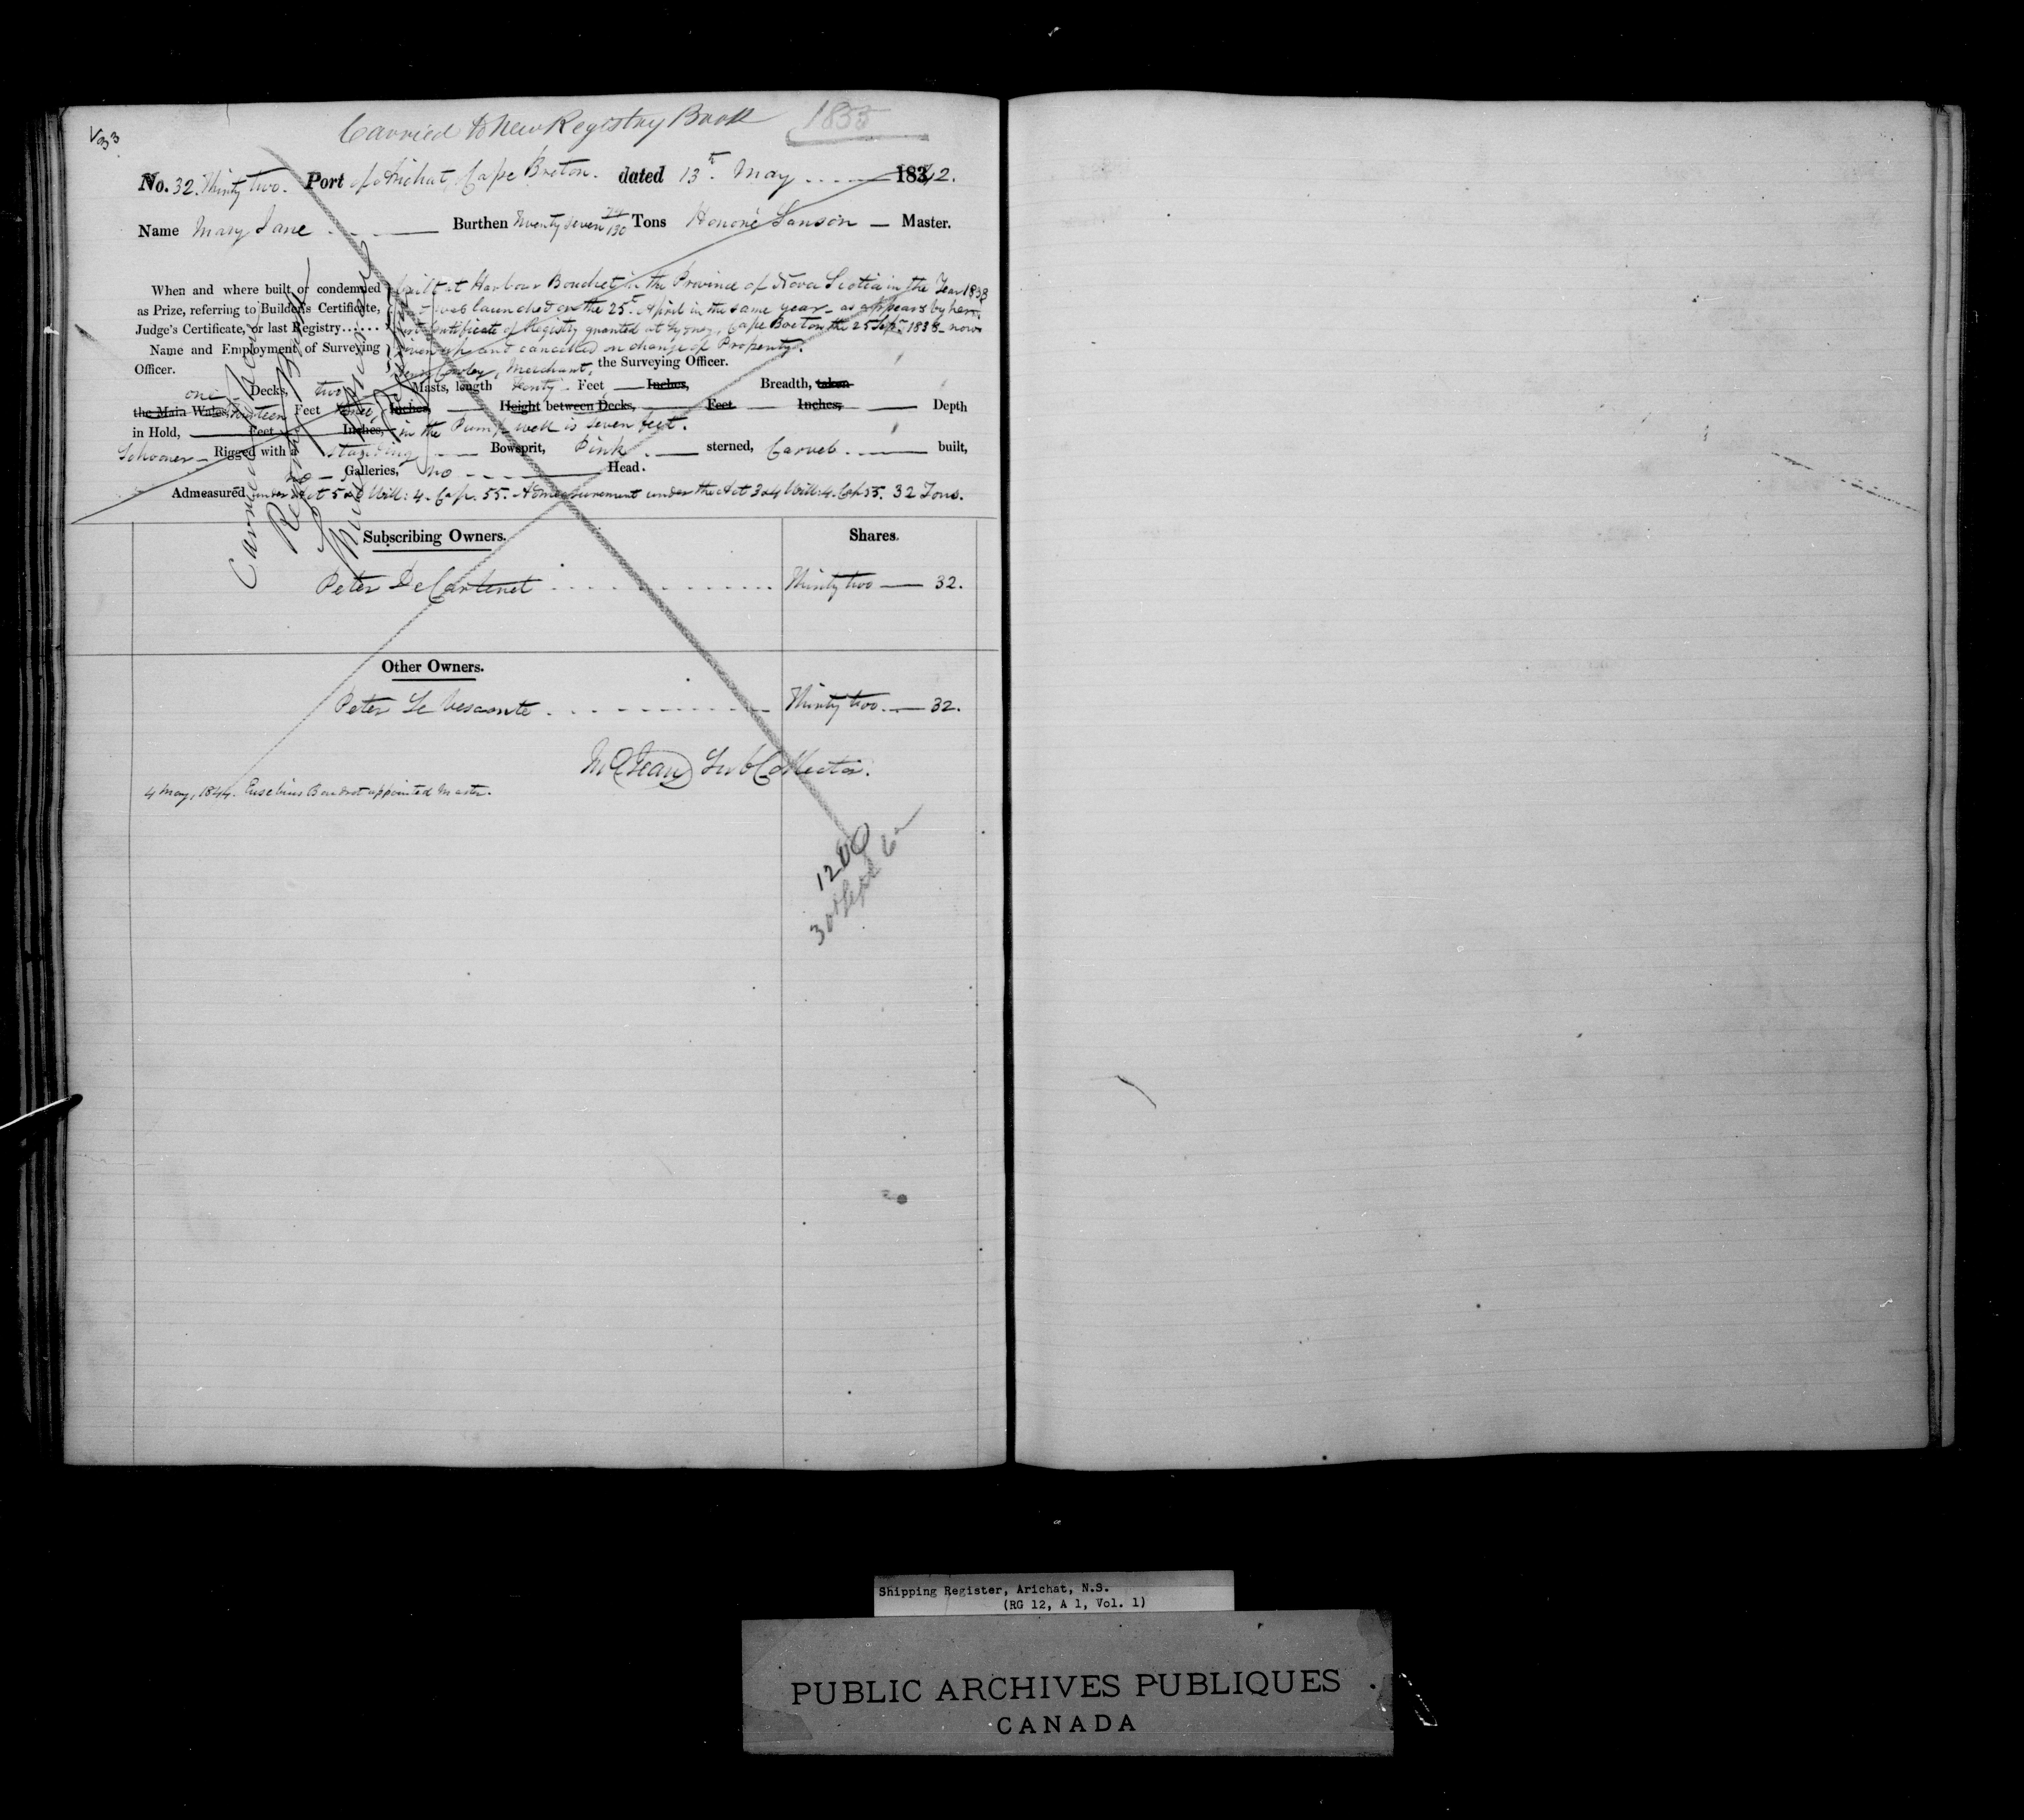 Carried to New Registry Book 1855
V33
No. 32. Thirty two. Port of Arichat, Cape Breton. dated 13th May 1842.
Name Mary Jane Burthen Twenty seven Tons Honoré Sanson Master.
When and where built or condemned as Prize, referring to Builder's Certificate, Judge's Certificate, or last Registry......
built at Harbour Bouchet in the Province of Nova Scotia in the Year 1838
was launched on the 25th April in the same year - as appears by her
Certificate of Registry granted at Sydney, Cape Breton the 25 Sepr 1838 - now
given up and cancelled on change of Property.
Name and Employment of Surveying Officer.
Merchant, the Surveying Officer.
one Decks, two Masts, length Feet Inches, Breadth, taken
the Main Wales, Feet three, Inches, Height between Decks, Feet Inches, Depth
in Hold, Feet Inches, in the Pump well is seven feet.
Schooner Rigged with a standing Bowsprit, Pink sterned, Carvel built,
no Galleries, no Head.
Admeasured under Act 5 & 6 Will: 4. Cap. 55. Admeasurement under the Act 3 & 4 Will: 4. Cap 55. 32 Tons.
Subscribing Owners. Shares.
Peter DeCarteret Thirty two 32.
Other Owners.
Peter Le Vesconte Thirty two 32.
Sub Collector.
4 May, 1844. Eusebius Boudrot appointed Master.
Shipping Register, Arichat, N.S.
(RG 12, A 1, Vol. 1)
PUBLIC ARCHIVES PUBLIQUES
CANADA